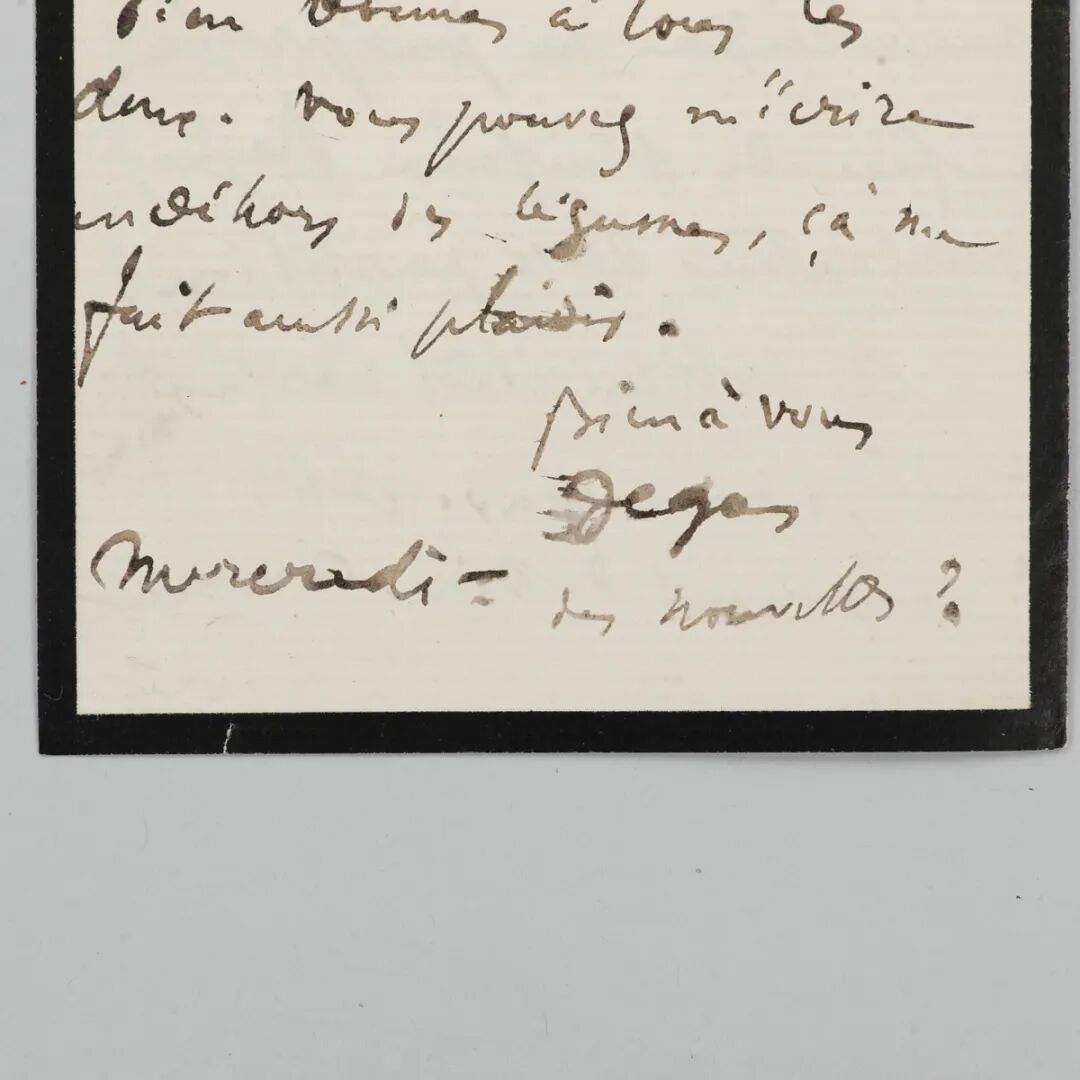 bien bonnes à tous les
deux. Vous pouvez m'écrire
en dehors des légumes, çà me
fait aussi plaisir.
Bien à vous
Degas
Mercredi =
des nouvelles ?